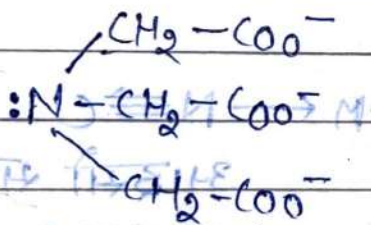 CH₂-COO⁻
:N-CH₂-COO⁻
CH₂-COO⁻